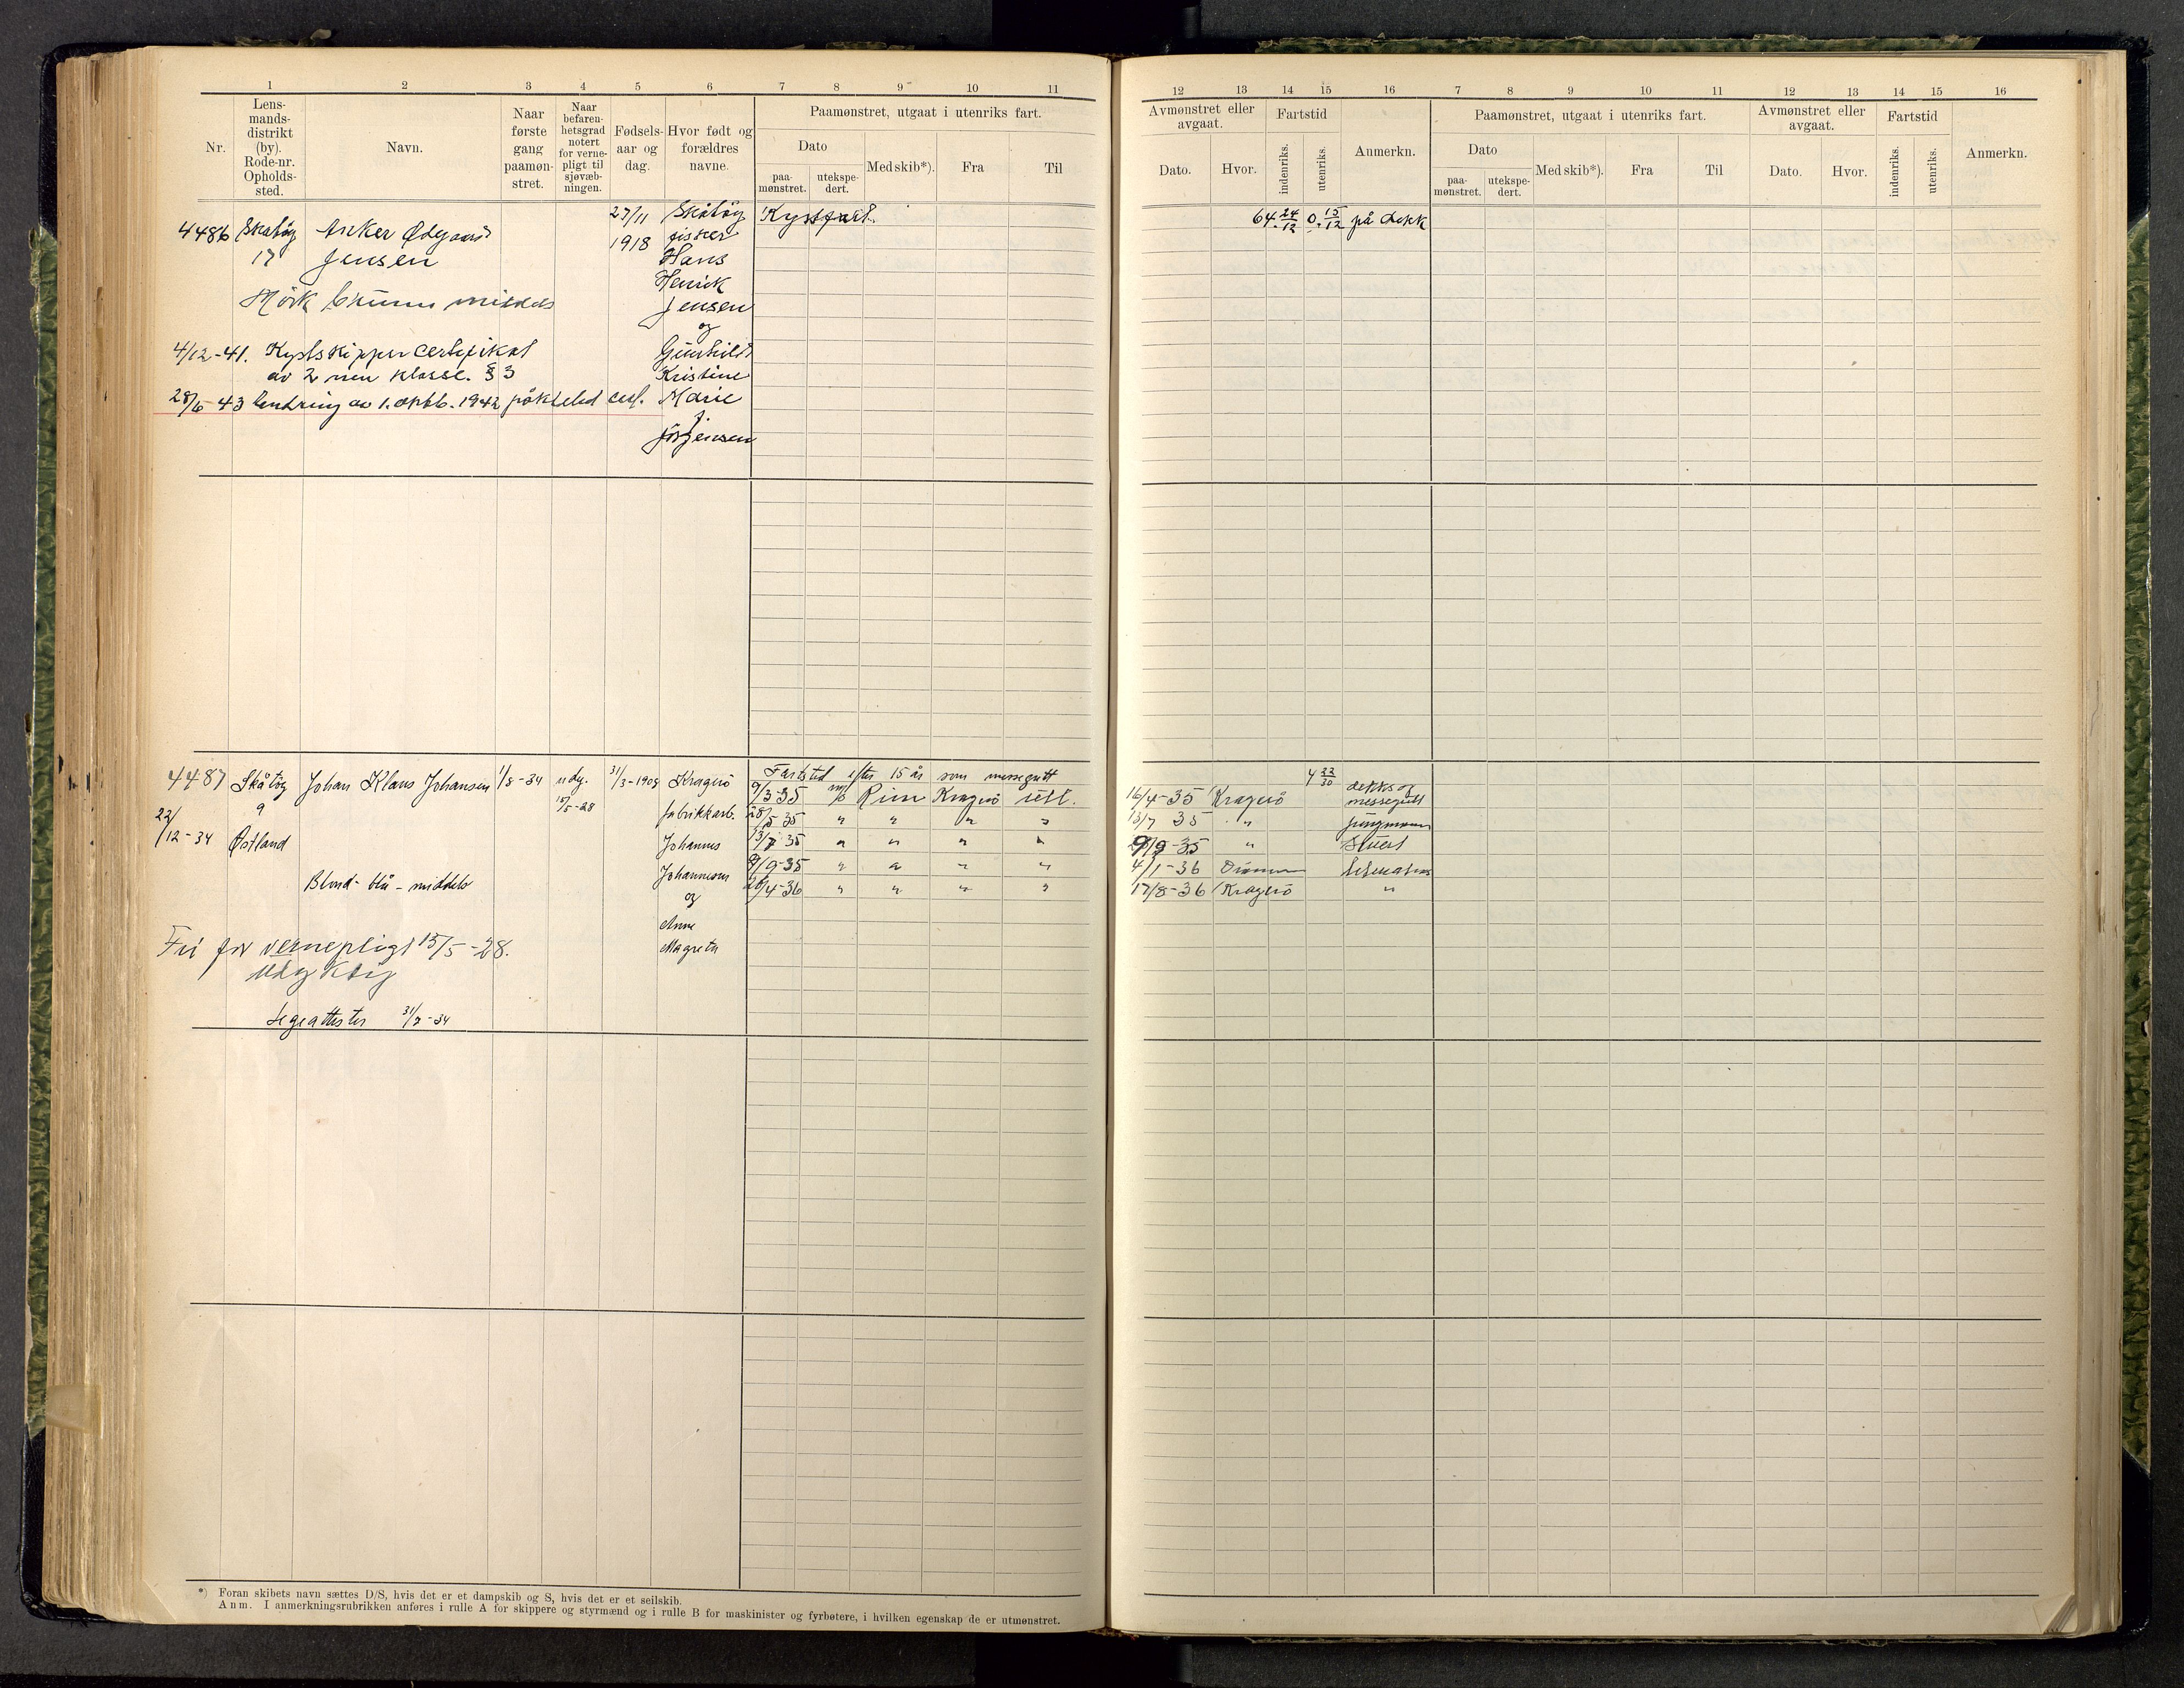 1 2 3 4 5 6 7 8 9 10 11
Nr.
Lens-
mands-
distrikt
(by).
Rode-nr.
Opholds-
sted.
Navn.
Naar
første
gang
paamøn-
stret.
Naar
befaren-
hetsgrad
notert
for verne-
pligt til
sjøvæb-
ningen.
Fødsels-
aar og
dag.
Hvor født og
forældres
navne.
Paamønstret, utgaat i utenriks fart.
Dato
paa-
mønstret.
utekspe-
dert.
Med skib*).
Fra
Til
4486 Skåtøy
17
Anker Ødegaard
Jensen
Mörk brunn middels
27/11
1918
Skåtøy
fisker
Hans
Henrik
Jensen
og
Gunhild
Kristine
Marie
f.
Jörgensen
Kystfart.
4/12-41. Kystskippercertifikat
av 2nen klasse. § 3
28/6-43 Endring av 1. oktb. 1942 påkteled cert.
4487 Skåtöy
9
22/12-34 Østland
Johan Klaus Johansen
1/8-34
udy.
15/5-28
31/3-1908
Kragerö
fabrikkarb.
Johannes
Johannesen
og
Anne
Magrete
Blond - blå - middels
Fri for vernepligt 15/5-28.
Udyktig
Legeattester 31/7-34
Fartstid efter 15 år som messegutt
9/3 35 m/s Rim Kragerö utl.
28/5 35 " " " "
13/7 35 " " " "
9/9-35 " " " "
28/4-36 " " " "
*) Foran skibets navn sættes D/S, hvis det er et dampskib og S, hvis det er et seilskib.
Anm. I anmerkningsrubrikken anføres i rulle A for skippere og styrmænd og i rulle B for maskinister og fyrbøtere, i hvilken egenskap de er utmønstret.
12 13 14 15 16 7 8 9 10 11 12 13 14 15 16
Avmønstret eller
avgaat.
Dato.
Hvor.
Fartstid
indenriks.
utenriks.
Anmerkn.
Paamønstret, utgaat i utenriks fart.
Dato
paa-
mønstret.
utekspe-
dert.
Med skib*).
Fra
Til
Avmønstret eller
avgaat.
Dato.
Hvor.
Fartstid
indenriks.
utenriks.
Anmerkn.
64 24/12 0 15/12 på dekk
4 22/30
16/4-35 Kragerö dekks og
messegutt
13/7 35 " Jungmann
9/9-35 " Stuert
4/1-36
17/8-36 Kragerö "